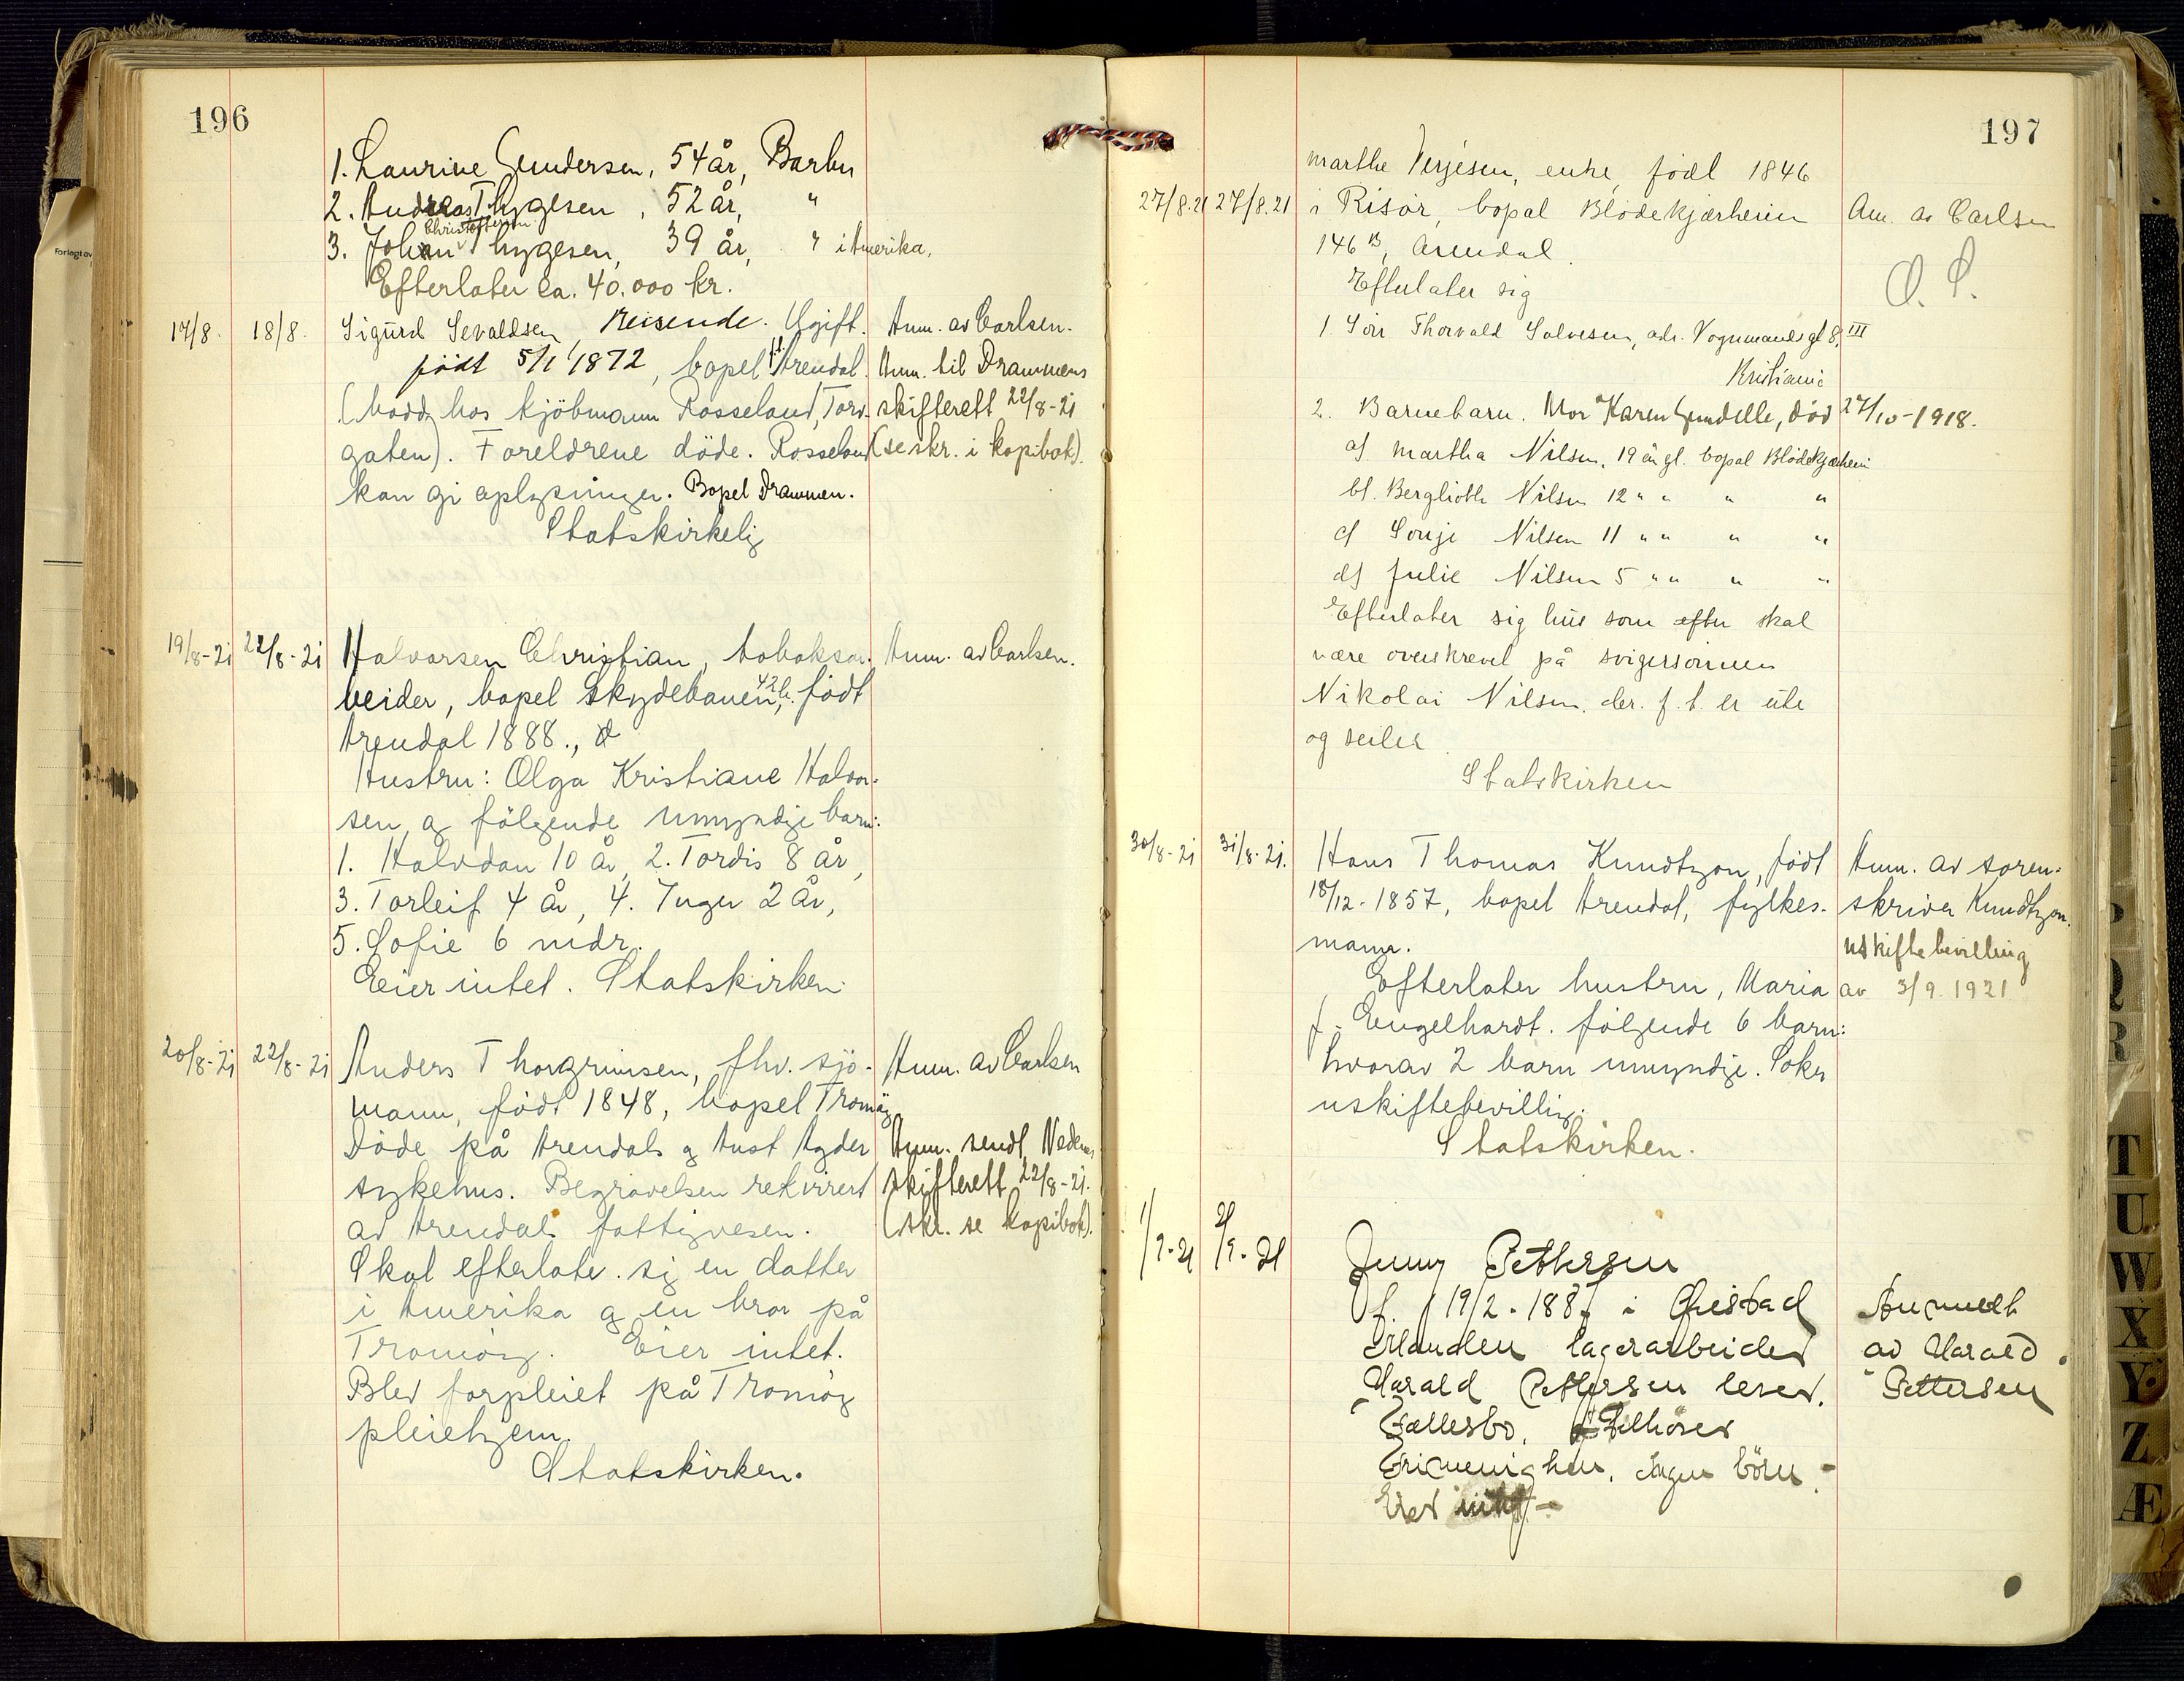 196
1. Laurine Gundersen, 54 år, Barbu
2. Andreas Thygesen, 52 år, "
Christofferson
3. Johan Thygesen, 39 år, " i Amerika.
Efterlater ca. 40.000 kr.
17/8. 18/8. Sigurd Sevaldsen, Reisende. Ugift. Anm. av Carlsen.
født 5/1 1872, bopel Arendal. Anm. til Drammens
(bodd hos kjöbmann Rosseland, Torv- skifterett 22/8-21
gaten). Foreldrene döde. Rosseland (se skr. i kopibok).
kan gi oplysninger. Bopel Drammen.
Statskirkelig
19/8-21 22/8-21 Halvorsen Christian, tobaksar- Anm. av Carlsen.
beider, bopel Skydebanen 42b, født
Arendal 1888.,
Hustru: Olga Kristiane Halvor-
sen, og fölgende umyndige barn:
1. Halvdan 10 år, 2. Tordis 8 år,
3. Torleif 4 år, 4. Inger 2 år,
5. Sofie 6 mdr.
Eier intet. Statskirken.
20/8-21 22/8-21 Anders Thorgrimsen, fhv. sjö- Anm. av Carlsen
mann, födt 1848, bopel Tromöy
Döde på Arendals og Aust Agder Anm. sendt Nedenes
sykehus. Begravelsen rekvirert skifterett 22/8-21.
av Arendals fattigvesen. (skr. se kopibok).
Skal efterlate sig en datter
i Amerika og en bror på
Tromöy. Eier intet.
Blev forpleiet på Tromöy
pleiehjem.
Statskirken.
197
Marthe Terjesen, enke, födt 1846
27/8.21 27/8.21 i Risör, bopæl Blödekjærheien Anm. av Carlsen
146 B, Arendal.
Efterlater sig O. S.
1. Sön Thorvald Salvesen, adr. Vognmandsgt 8, III
Kristiania
2. Barnebarn. Mor Karen Gundelle, död 27/10-1918.
a) Martha Nilsen, 19 år gl. bopæl Blödekjærheien
b). Bergliotte Nilsen 12 " " " "
c) Sonja Nilsen 11 " " " "
d) Julie Nilsen 5 " " " "
Efterlater sig hus som efter skal
være overskrevet på svigersönnen
Nikolai Nilsen, der f. t. er ute
og seiler.
Statskirken
30/8-21 31/8-21. Hans Thomas Knudtzon, födt Anm. av soren-
18/12-1857, bopel Arendal, fylkes- skriver Knudtzon.
mann. uskiftebevilling
Efterlater hustru, Maria av 3/9 1921
f. Engelhardt. fölgende 6 barn:
hvorav 2 barn umyndige. Söker
uskiftebevilling.
Statskirken.
1/9-21 2/9-21 Jenny Pettersen
f. 19/2-188 i Öiestad Anmeldt
Manden lagerarbeider av Harald
Harald Pettersen lever. Pettersen
Fællesbo. Tilhörer
Frimenigheden. Ingen börn.-
Eier intet-